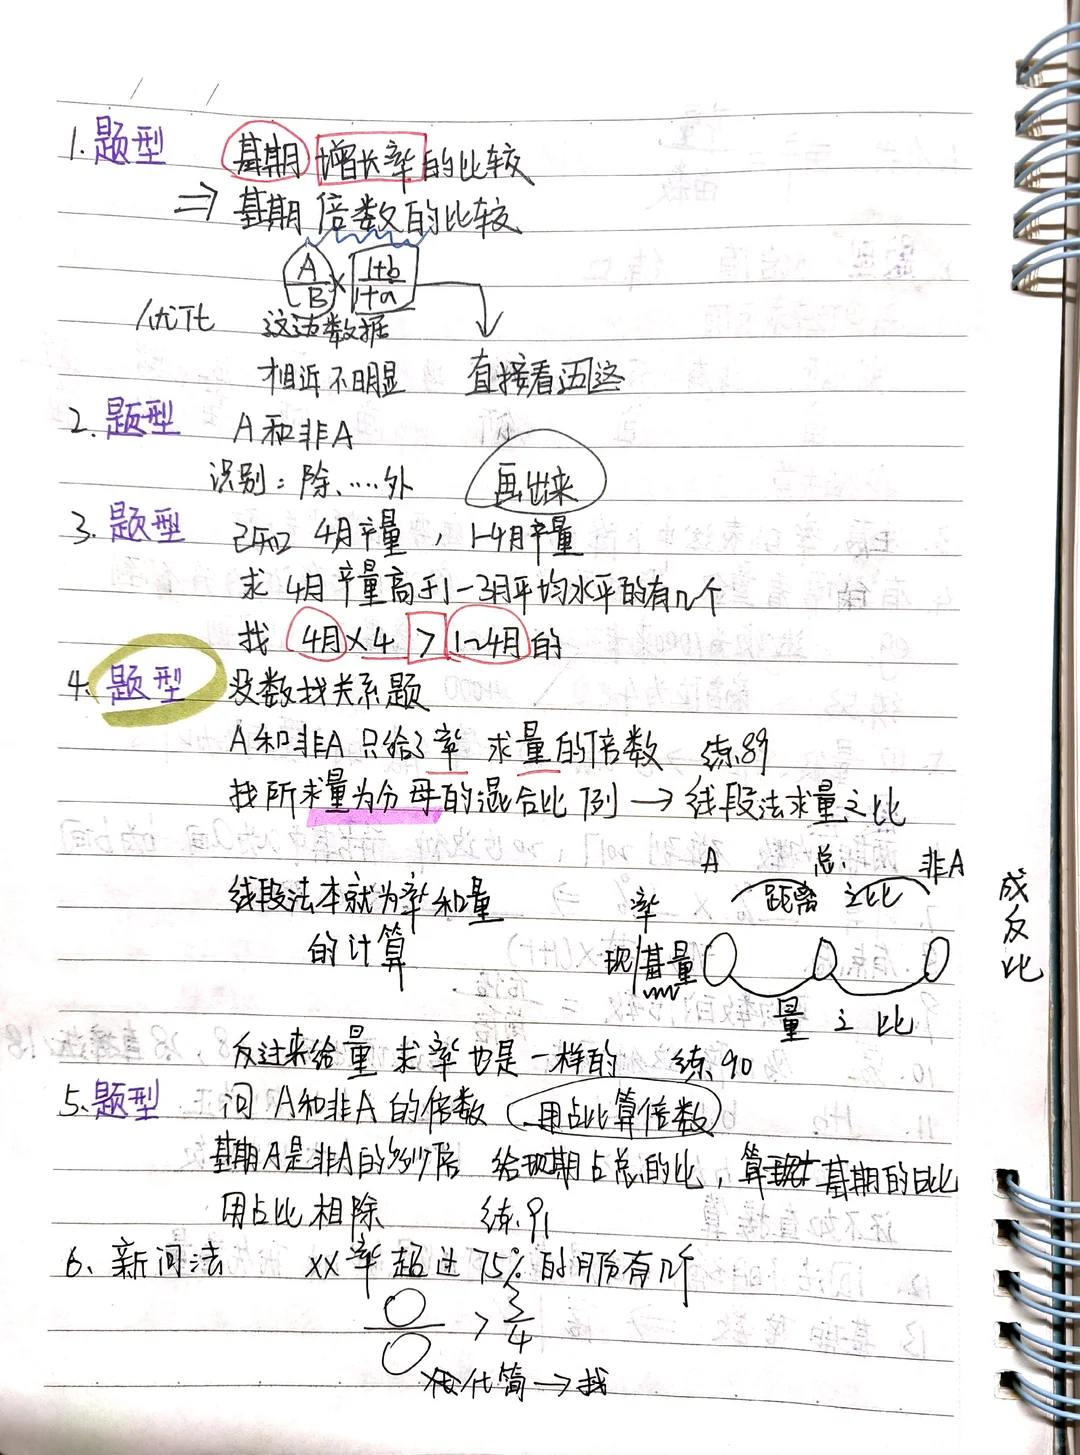 1. 题型 基期 增长率的比较
⇒ 基期 倍数的比较
A/B × 1+b/1+a
优化 这边数据
相近不明显 直接看这边
2. 题型 A和非A
识别: 除……外 画出来
3. 题型 已知 4月产量, 1-4月产量
求 4月产量高于1-3月平均水平的有几个
找 4月×4 > 1~4月的
4. 题型 没数找关系题
A和非A 只给了率 求量的倍数 练89
找所求量为分母的混合比例 → 线段法求量之比
A 总 非A
线段法本就为率和量 率 距离 之比
的计算 现/基量
量 之 比
成反比
反过来给量 求率也是一样的 练90
5. 题型 问 A和非A的倍数 用占比算倍数
基期A是非A的多少倍 给现期占总的比, 算 基期的占比
用占比相除 练91
6. 新问法 xx率超过75%的月份有几个
> 3/4
化简 → 找